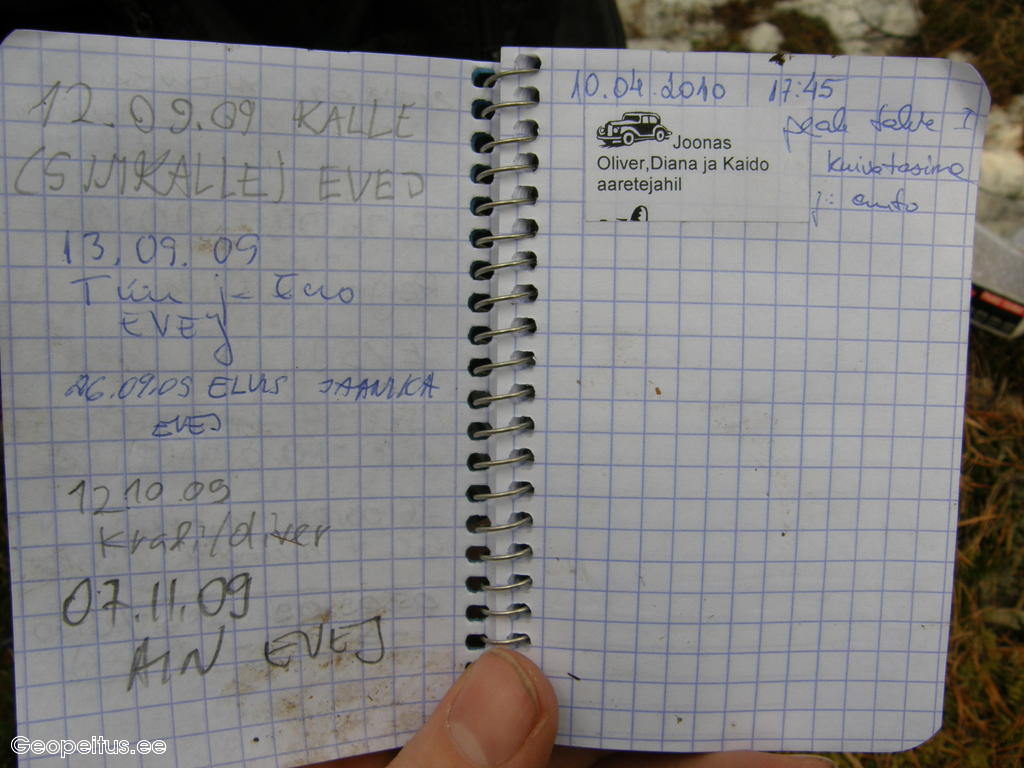 12.09.09 KALLE
(SIMKALLE) EVEJ
13.09.09
Tiiu ja Eno
EVEJ
26.09.09 ELVIS JAANIKA
EVEJ
12.10.09
Krafi/diver
07.11.09
AIN EVEJ
10.04.2010 17:45
Joonas
Oliver,Diana ja Kaido
aaretejahil
peale talve I
kuivatasime
Geopeitus.ee